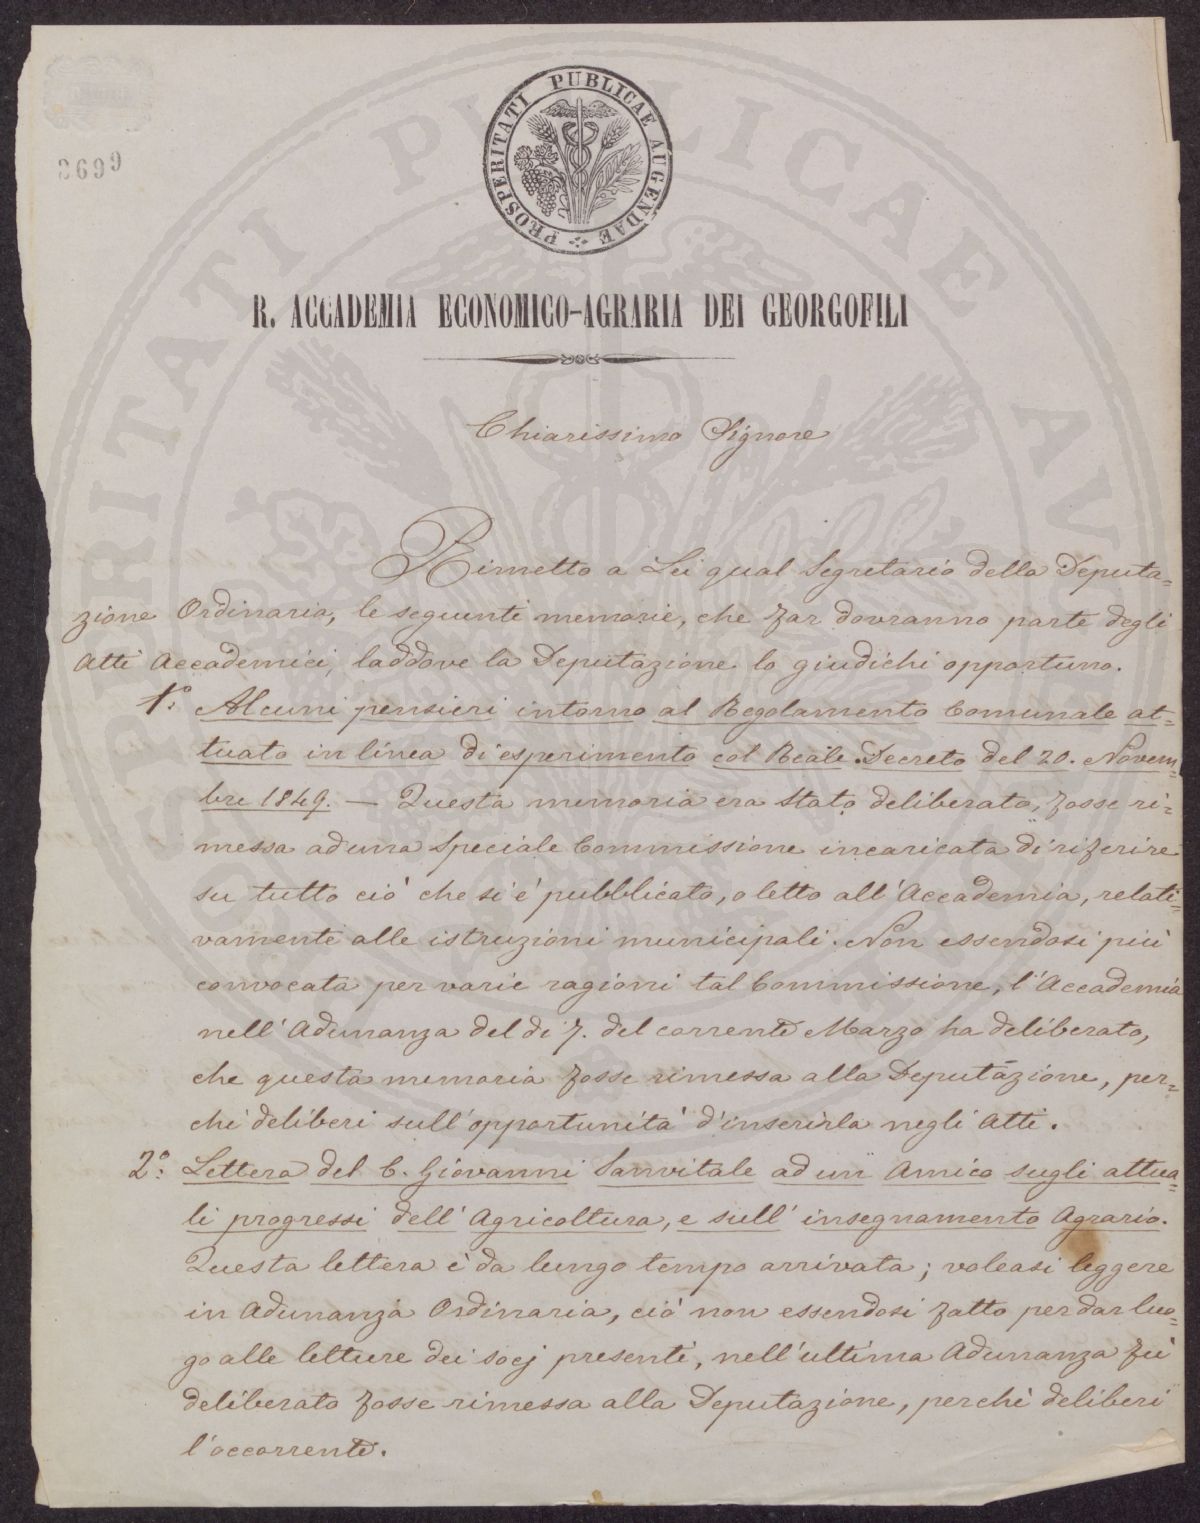 PROSPERITATI PUBLICAE AUGENDAE
3699
R. ACCADEMIA ECONOMICO-AGRARIA DEI GEORGOFILI
Chiarissimo Signore
Rimetto a Lei qual Segretario della Deputa=
zione Ordinaria, le seguenti memorie, che far dovranno parte degli
Atti Accademici, laddove la Deputazione lo giudichi opportuno.
1º. Alcuni pensieri intorno al Regolamento Comunale at=
tuato in linea di esperimento col Reale Decreto del 20. Novem=
bre 1849. — Questa memoria era stato deliberato, fosse ri=
messa ad una speciale Commissione incaricata di riferire
su tutto ciò che si è pubblicato, o letto all'Accademia, relati=
vamente alle istruzioni municipali. Non essendosi più
convocata per varie ragioni tal Commissione, l'Accademia
nell'Adunanza del dì 7. del corrente Marzo ha deliberato,
che questa memoria fosse rimessa alla Deputazione, per=
chè deliberi sull'opportunità d'inserirla negli Atti.
2º. Lettera del C. Giovanni Sanvitale ad un Amico sugli attua=
li progressi dell'Agricoltura, e sull'insegnamento Agrario.
Questa lettera è da lungo tempo arrivata; voleasi leggere
in Adunanza Ordinaria, ciò non essendosi fatto per dar luo=
go alle letture dei socj presenti, nell'ultima Adunanza fù
deliberato fosse rimessa alla Deputazione, perchè deliberi
l'occorrente.